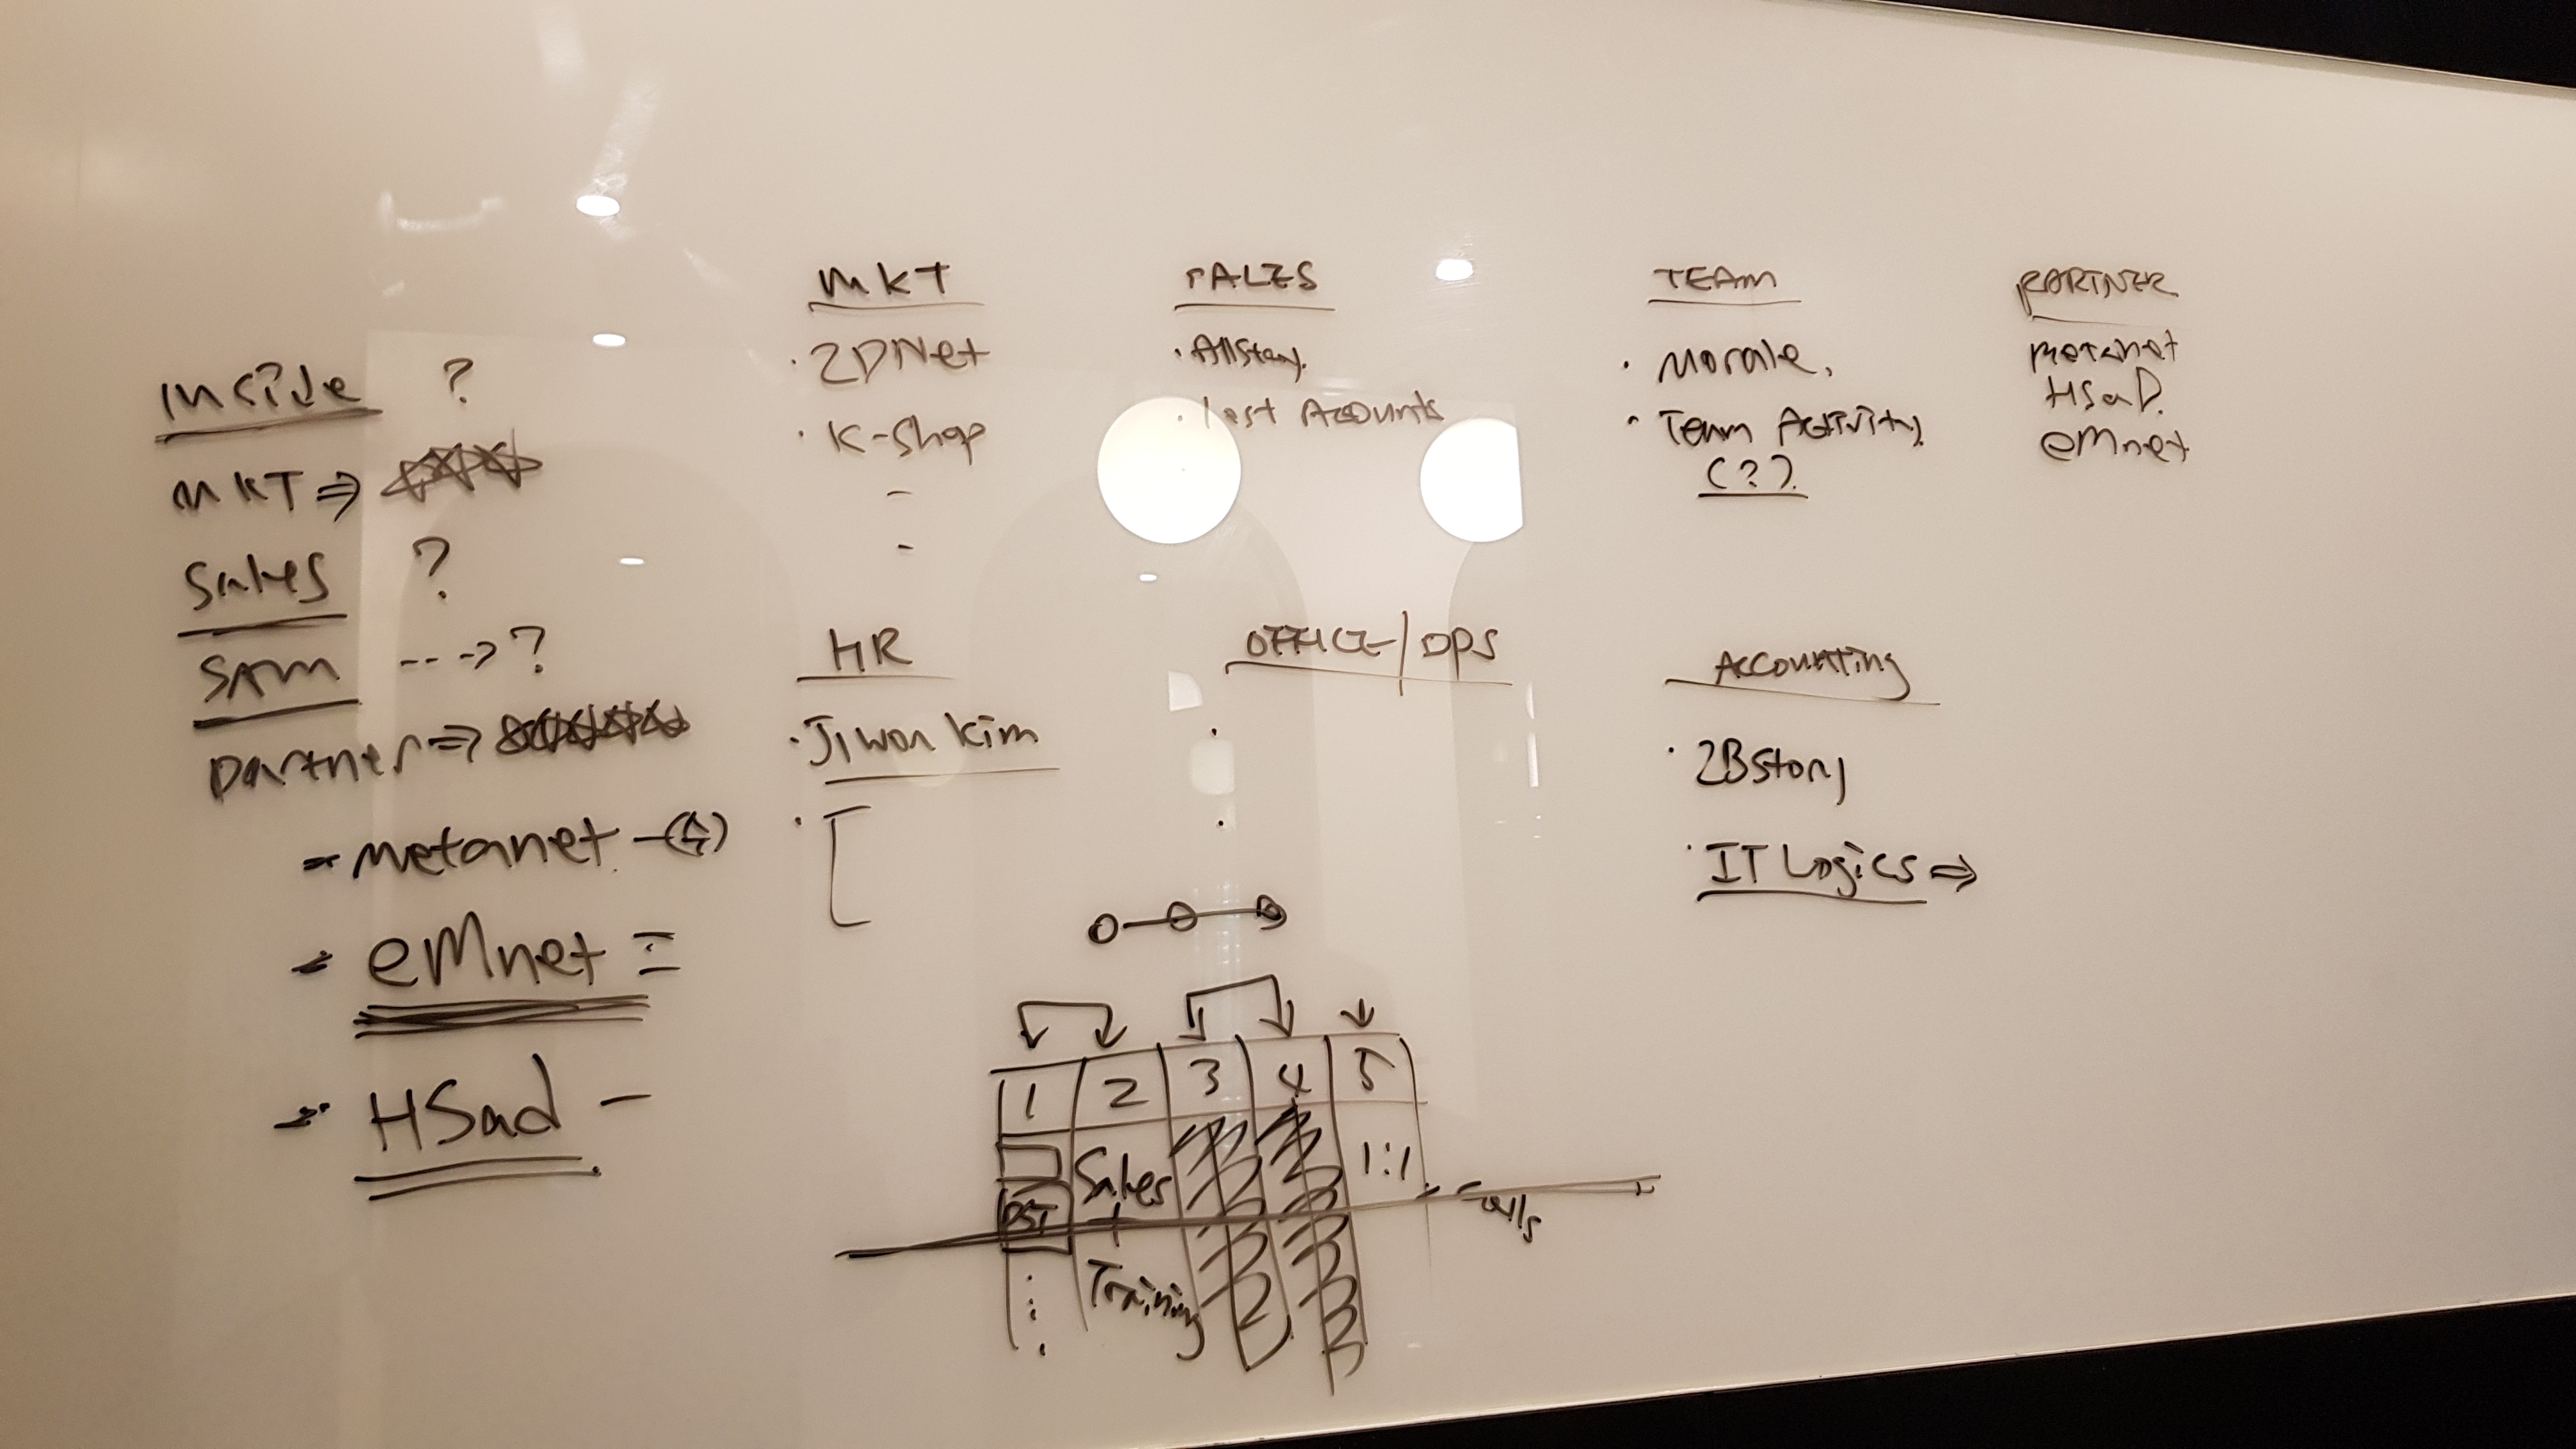 Inside ?
MKT ⇒
Sales ?
SAM ---> ?
Partner ⇒
- Metanet -(4)
- eMnet =
- HSad -
MKT
· ZDNet
· K-Shop
-
-
SALES
· Allstay.
· Lost Accounts
TEAM
· Morale.
· Team Activity
(?)
PARTNER
Metanet
HSaD.
eMnet
HR
· Jiwon Kim
·
OFFICE/OPS
·
·
Accounting
· 2BStory
· IT Logics ⇒
1 2 3 4 5
Sales 1:1
+
Training